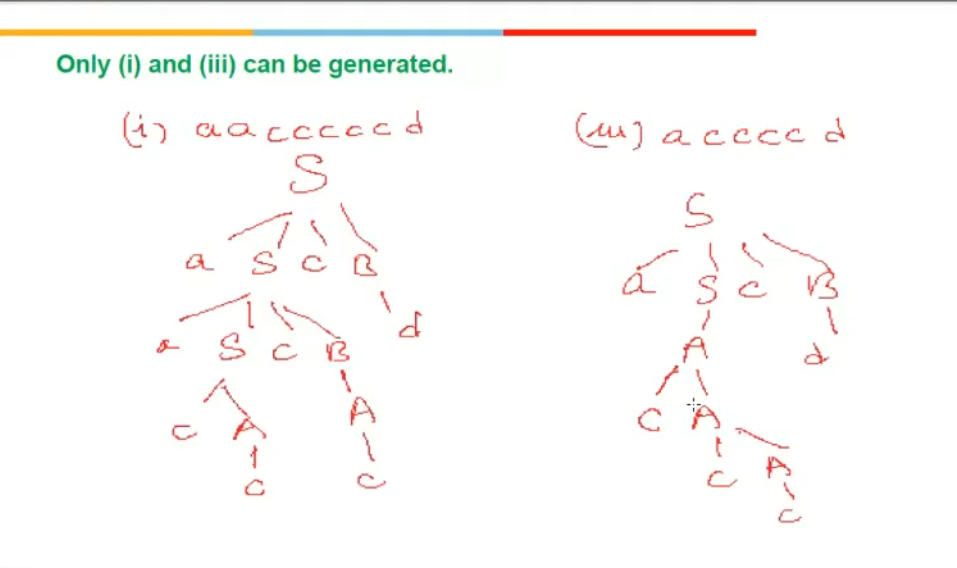 Only (i) and (iii) can be generated.
(i) a a c c c c c d
S
a S c B
d
a S c B
c A A
c c
(iii) a c c c c d
S
a S c B
A d
c A
c A
c